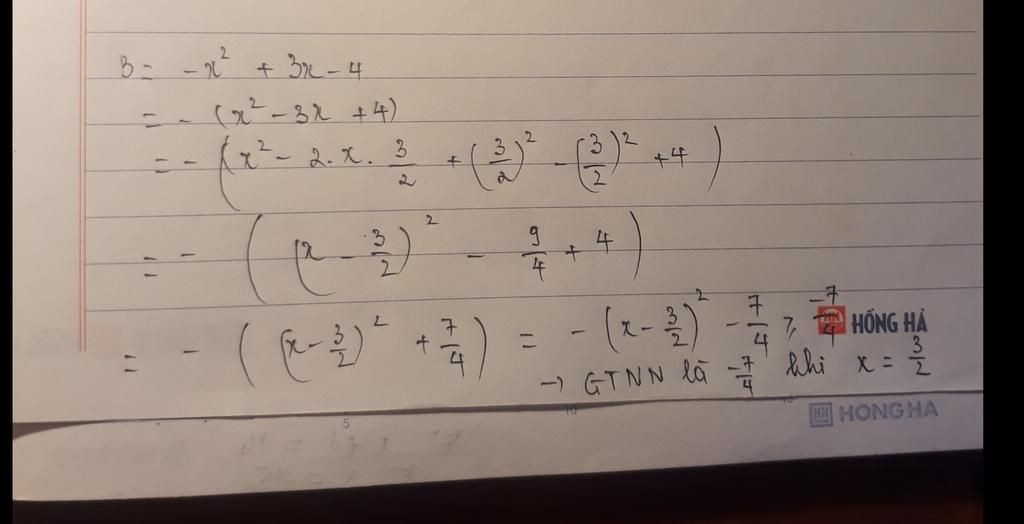 B = -x² + 3x - 4
= - (x² - 3x + 4)
= - (x² - 2.x. 3/2 + (3/2)² - (3/2)² + 4)
= - ((x - 3/2)² - 9/4 + 4)
= - ((x - 3/2)² + 7/4) = - (x - 3/2)² - 7/4 ≥ -7/4
HỒNG HÀ
→ GTNN là -7/4 khi x = 3/2
HH HONG HA
5
10
15